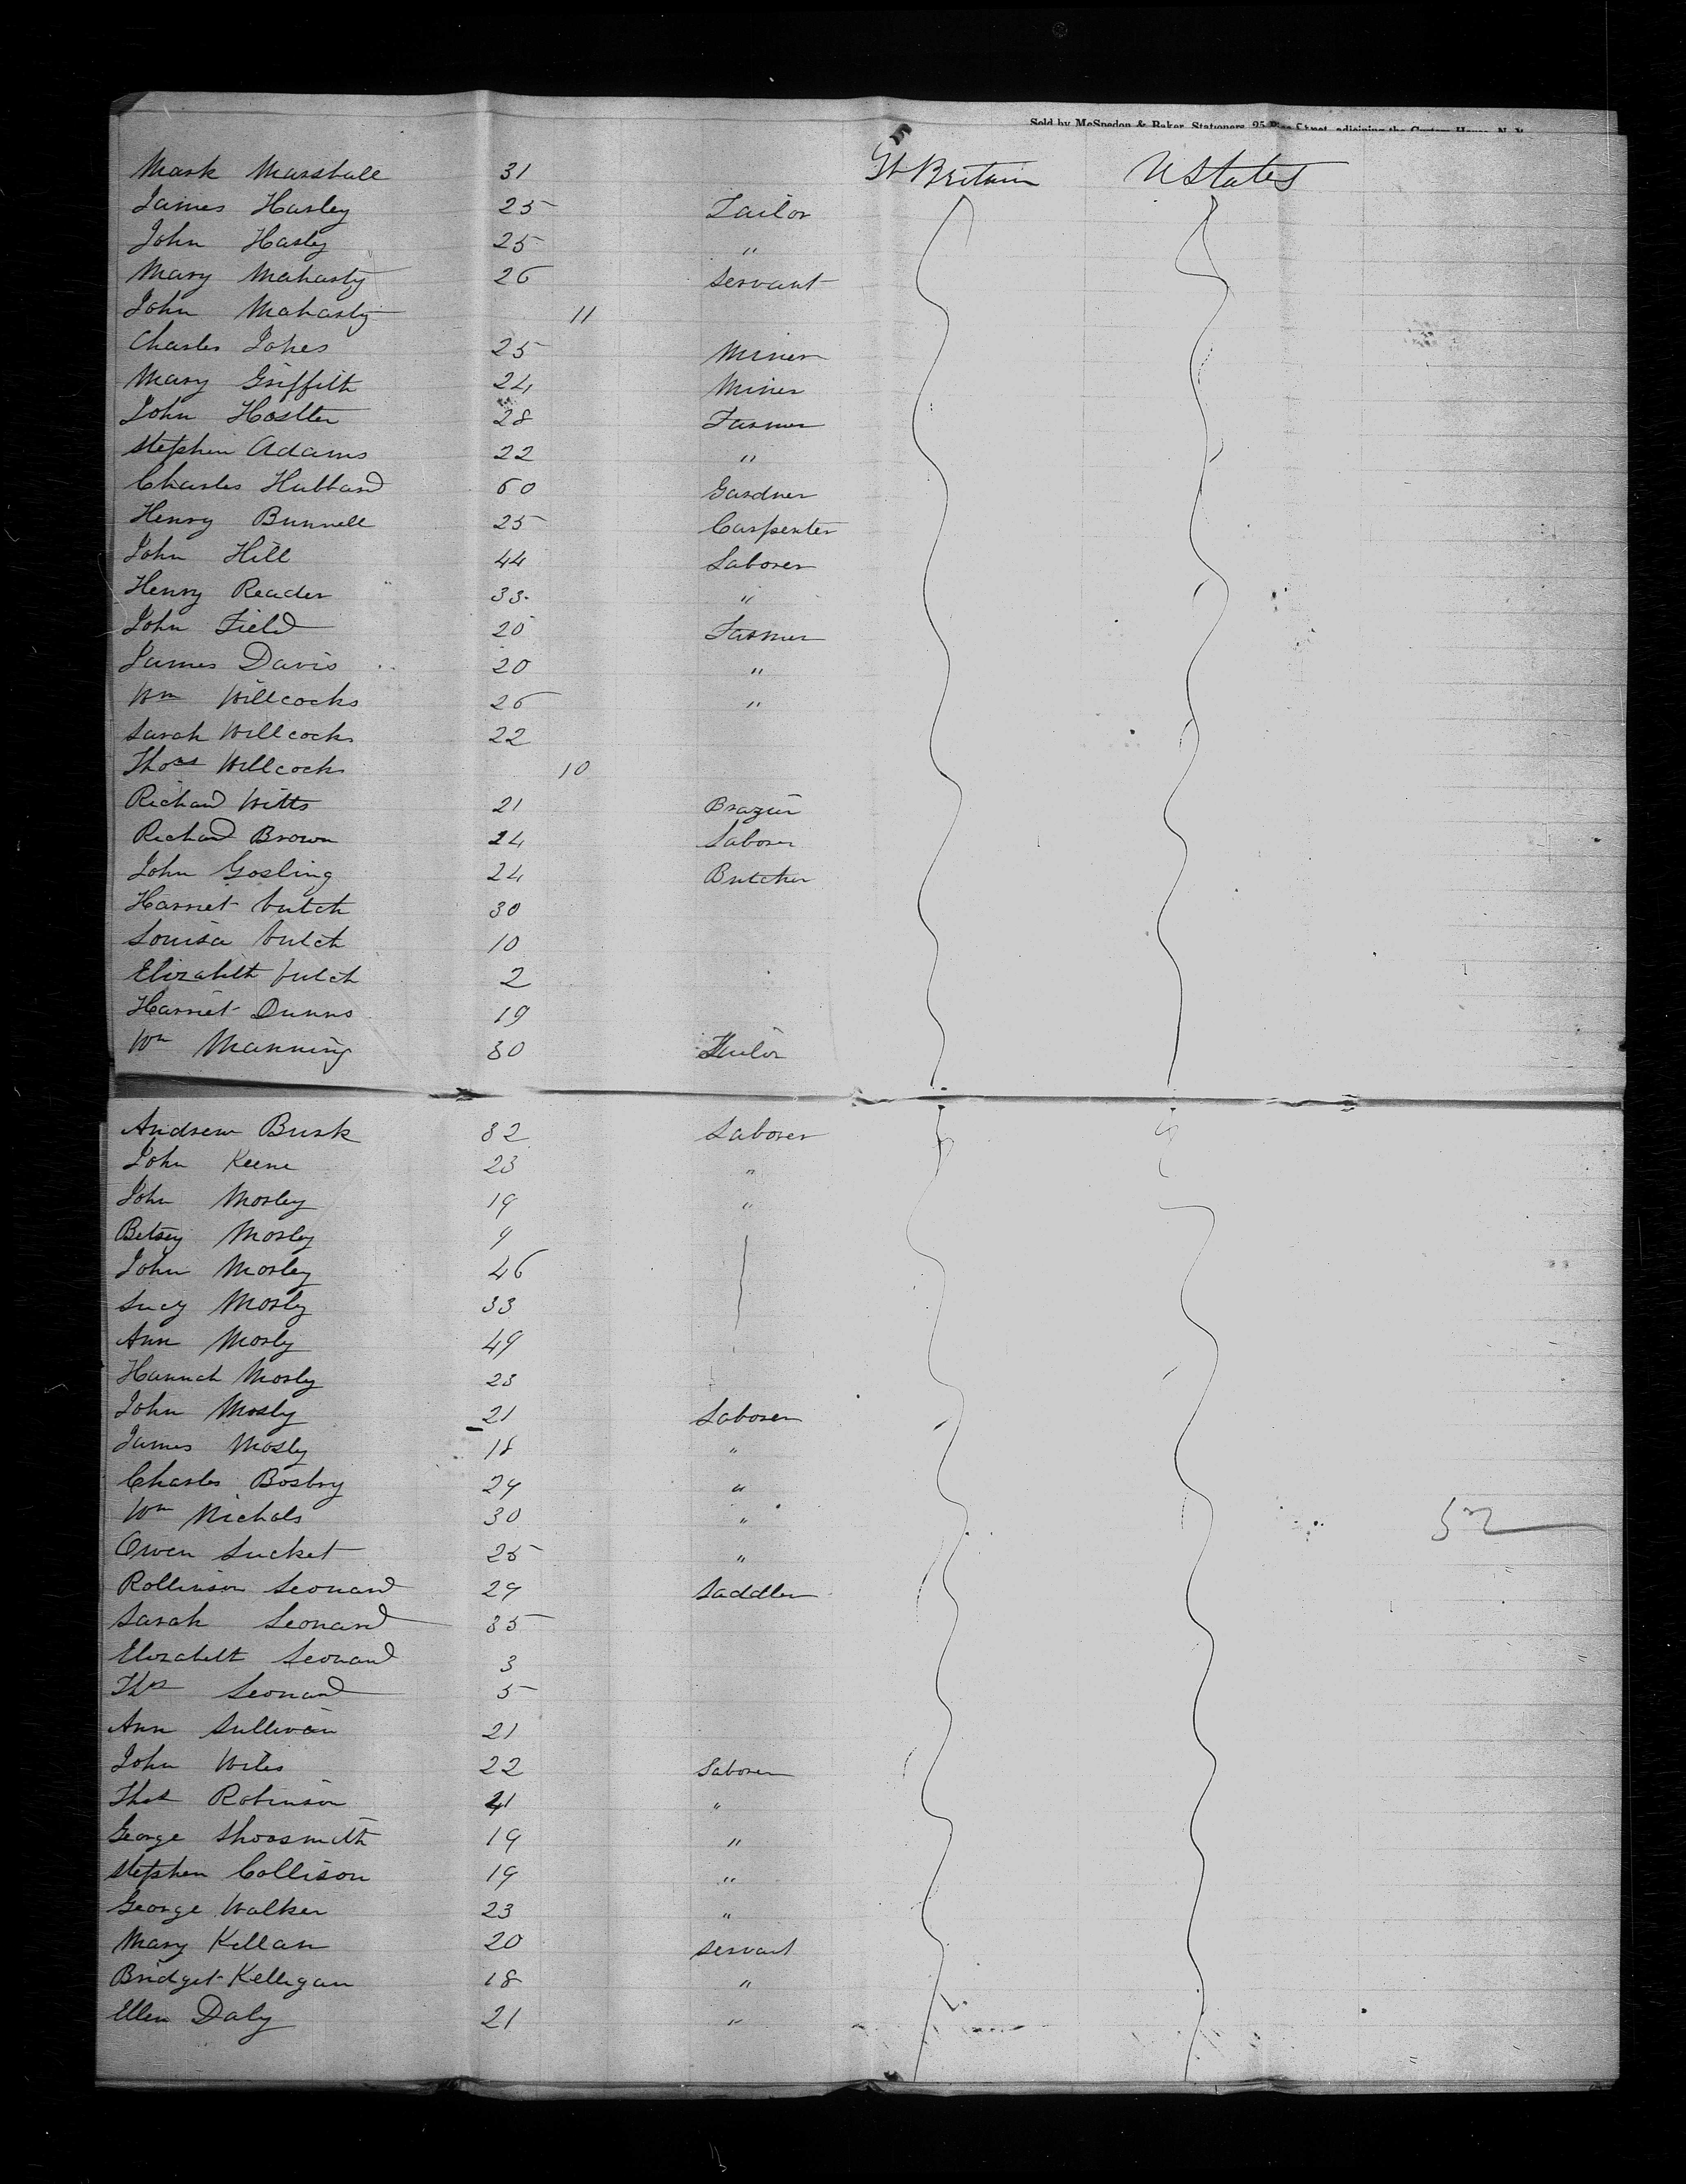 Sold by McSpedon & Baker, Stationers, 25 Pine Street, adjoining the Custom House, N. Y.
5
Mark Marshall 31 Gt Britain U States
James Harley 25 Tailor
John Harley 25 "
Mary Maharty 26 Servant
John Maharty 11
Charles Jones 25 Miner
Mary Griffith 24 Miner
John Hostler 28 Farmer
Stephen Adams 22 "
Charles Hubbard 60 Gardner
Henry Bunnell 25 Carpenter
John Hill 44 Laborer
Henry Reader 33 "
John Field 20 Farmer
James Davis 20 "
Wm Willcocks 26 "
Sarah Willcocks 22
Thos Willcocks 10
Richard Witts 21 Brazier
Richard Brown 24 Laborer
John Gosling 24 Butcher
Harriet 30
Louisa 10
Elizabeth 2
Harriet Dunns 19
Wm Manning 30 Tailor
Andrew Busk 32 Laborer
John Keene 23 "
John Mosley 19 "
Betsey Mosley 9
John Mosley 46
Lucy Mosly 33
Ann Mosly 49
Hannah Mosly 23
John Mosly 21 Laborer
James Mosly 18 "
Charles Bosbry 29 "
Wm Nichols 30 "
52
Owen Lucket 25 "
Rollinson Leonard 29 Saddler
Sarah Leonard 35
Elizabeth Leonard 3
Thos Leonard 5
Ann Sullivan 21
John Wiles 22 Laborer
Thos Robinson 21 "
George Shoosmith 19 "
Stephen Collison 19 "
George Walker 23 "
Mary Kellan 20 Servant
Bridget Kelligan 18 "
Ellen Daly 21 "